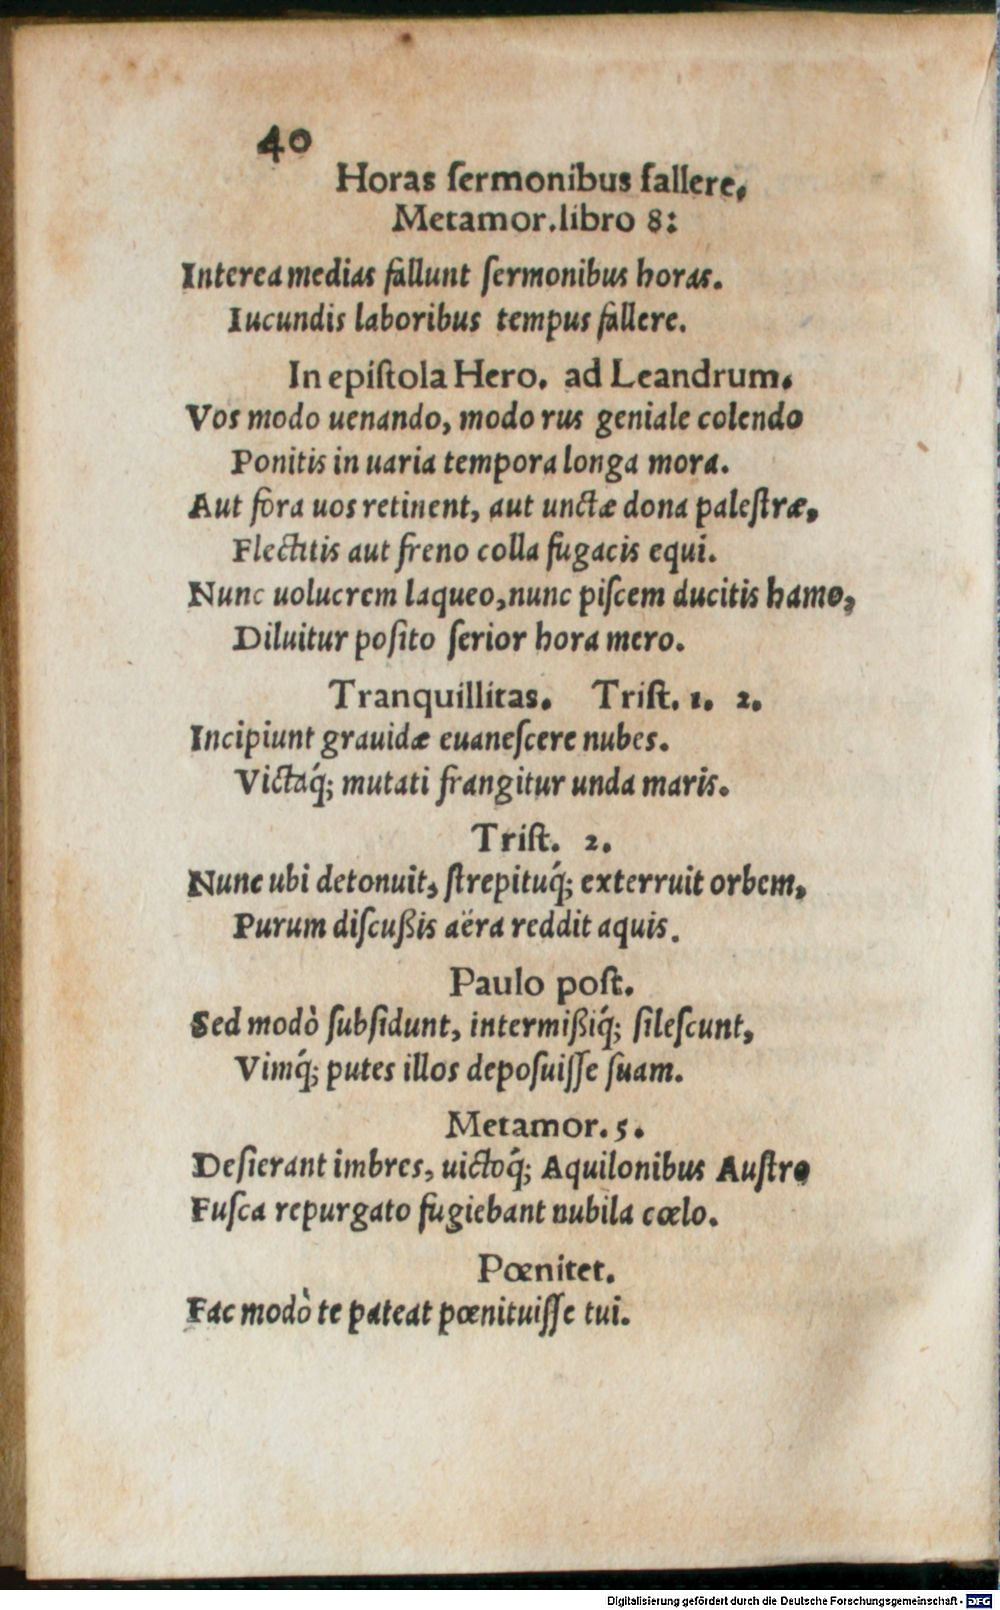 40
Horas ſermonibus fallere.
Metamor.libro 8:
Interea medias fallunt ſermonibus horas.
Iucundis laboribus tempus fallere.
In epiſtola Hero. ad Leandrum.
Vos modo uenando, modo rus geniale colendo
Ponitis in uaria tempora longa mora.
Aut fora uos retinent, aut unctæ dona paleſtræ,
Flectitis aut freno colla fugacis equi.
Nunc uolucrem laqueo, nunc piſcem ducitis hamo,
Diluitur poſito ſerior hora mero.
Tranquillitas. Triſt. 1. 2.
Incipiunt grauidæ euaneſcere nubes.
Victaq́; mutati frangitur unda maris.
Triſt. 2.
Nunc ubi detonuit, ſtrepituq́; exterruit orbem,
Purum diſcußis aëra reddit aquis.
Paulo poſt.
Sed modò ſubſidunt, intermißiq́; ſileſcunt,
Vimq́; putes illos depoſuiſſe ſuam.
Metamor. 5.
Deſierant imbres, uictoq́; Aquilonibus Auſtro
Fuſca repurgato fugiebant nubila cœlo.
Pœnitet.
Fac modò te pateat pœnituiſſe tui.
Digitalisierung gefördert durch die Deutsche Forschungsgemeinschaft - DFG